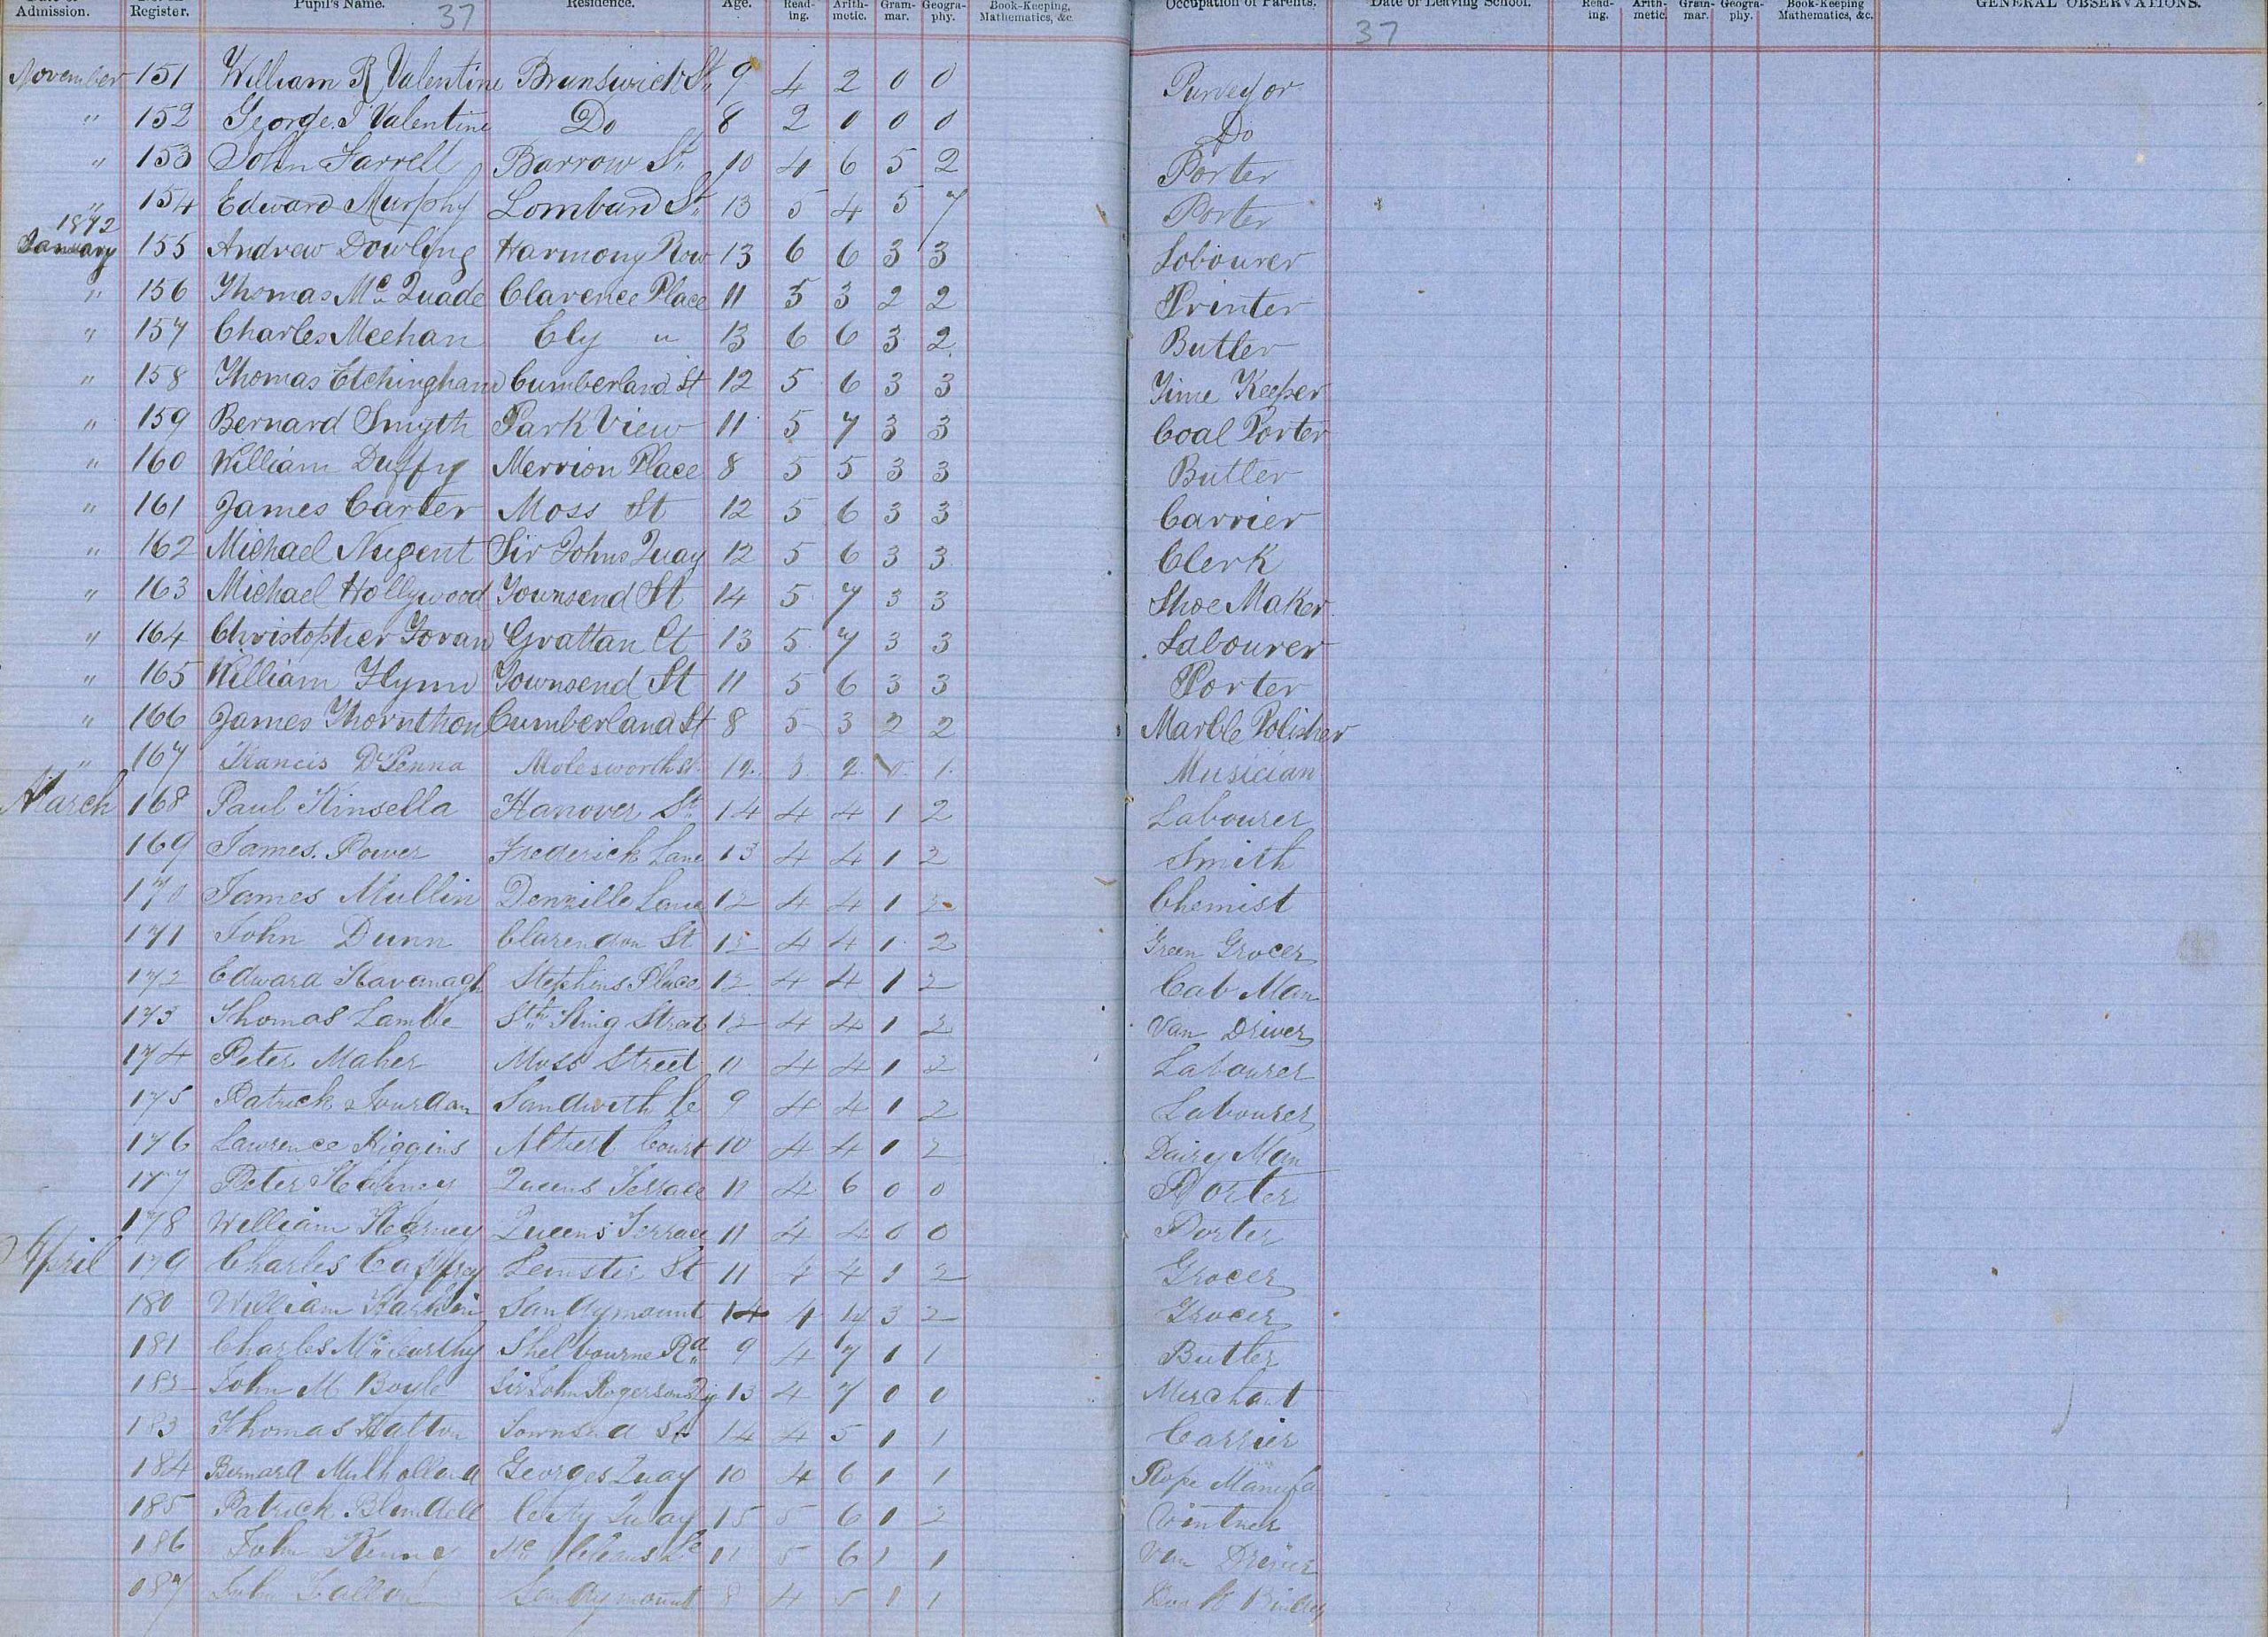 Date of Admission. No. in Register. Pupil's Name. 37 Residence. Age. Read-ing. Arith-metic. Gram-mar. Geogra-phy. Book-Keeping, Mathematics, &c. Occupation of Parents. 37 Date of Leaving School. Read-ing. Arith-metic. Gram-mar. Geogra-phy. Book-Keeping Mathematics, &c. GENERAL OBSERVATIONS.
November 151 William R Valentine Brunswick St 9 4 2 0 0 Purveyor
" 152 George. Valentine Do 8 2 0 0 0 Do
" 153 John Farrell Barrow St 10 4 6 5 2 Porter
" 154 Edward Murphy Lombard St 13 5 4 5 7 Porter
1872
January 155 Andrew Dowling Harmony Row 13 6 6 3 3 Lobourer
" 156 Thomas Mc Quade Clarence Place 11 5 3 2 2 Printer
" 157 Charles Meehan Ely " 13 6 6 3 2 Butler
" 158 Thomas Etchingham Cumberland St 12 5 6 3 3 Time Keeper
" 159 Bernard Smyth Park View 11 5 7 3 3 Coal Porter
" 160 William Duffy Merrion Place 8 5 5 3 3 Butler
" 161 James Carter Moss St 12 5 6 3 3 Carrier
" 162 Michael Nugent Sir Johns Quay 12 5 6 3 3 Clerk
" 163 Michael Hollywood Townsend St 14 5 7 3 3 Shoe Maker
" 164 Christopher Foran Grattan Ct 13 5 7 3 3 Labourer
" 165 William Flynn Townsend St 11 5 6 3 3 Porter
" 166 James Thornthon Cumberland St 8 5 3 2 2 Marble Polisher
" 167 Francis D'Penna Molesworth St 12 3 2 0 1 Musician
March 168 Paul Kinsella Hanover St 14 4 4 1 2 Labourer
169 James. Power Frederick Lane 13 4 4 1 2 Smith
170 James Mullin Denzille Lane 12 4 4 1 2 Chemist
171 John Dunn Clarendon St 12 4 4 1 2 Green Grocer
172 Edward Kavanagh Stephens Place 12 4 4 1 2 Cab Man
173 Thomas Lambe Sth King Street 12 4 4 1 2 Van Driver
174 Peter Maher Moss Street 11 4 4 1 2 Labourer
175 Patrick Jourdan Sandwith Le 9 4 4 1 2 Labourer
176 Lawrence Higgins Albert Court 10 4 4 1 2 Dairy Man
177 Peter Kearney Queens Terrace 11 4 6 0 0 Porter
178 William Kearney Queens Terrace 11 4 4 0 0 Porter
April 179 Charles Caffrey Leinster St 11 4 4 1 2 Grocer
180 William Sandymount 14 4 4 3 2 Grocer
181 Charles Mc Carthy Shelbourne Rd 9 4 7 1 1 Butler
182 John M Boyle Sir John Rogersons Qy 13 4 7 0 0 Merchant
183 Thomas Halton Townsend St 14 4 5 1 1 Carrier
184 Bernard Mulholland Georges Quay 10 4 6 1 1 Rope Manufa
185 Patrick Blundell City Quay 15 5 6 1 2 Vintner
186 John 11 5 6 1 1 Van Driver
187 John Fallon Sandymount 8 4 5 1 1 Book Binder